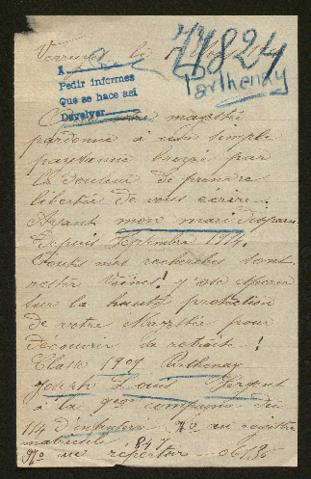 Verruyes le
77824
Parthenay
A
Pedir informes
Que se hace así
Devolver
majesté
pardonné à une simple
paysanne broyée par
la douleur de prendre
liberté de vous écrire.
Ayant mon mari disparu
depuis Septembre 1914.
Toutes mes recherches sont
restée Vaines! j'ose espérer
sur la haute protection
de votre Majestée pour
découvrir la retraite!
Classe 1909 Parthenay
Joseph Louis Sergent
à la 9eme compagnie du
114 d'infanterie No au registre
matricule 847
No au repertoire